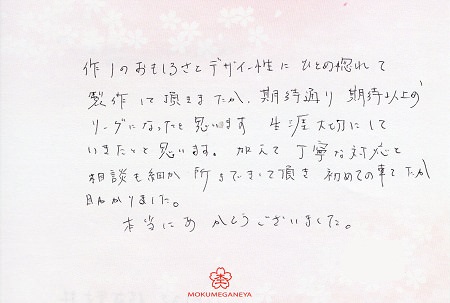 作りのおもしろさとデザイン性に ひとめ惚れて
製作して頂きましたが、期待通り 期待以上の
リングになったと思います 生涯大切にして
いきたいと思います。加えて丁寧な対応と
相談も細か 所までして頂き 初めての事でしたが
助かりました。
本当にありがとうございました。
MOKUMEGANEYA